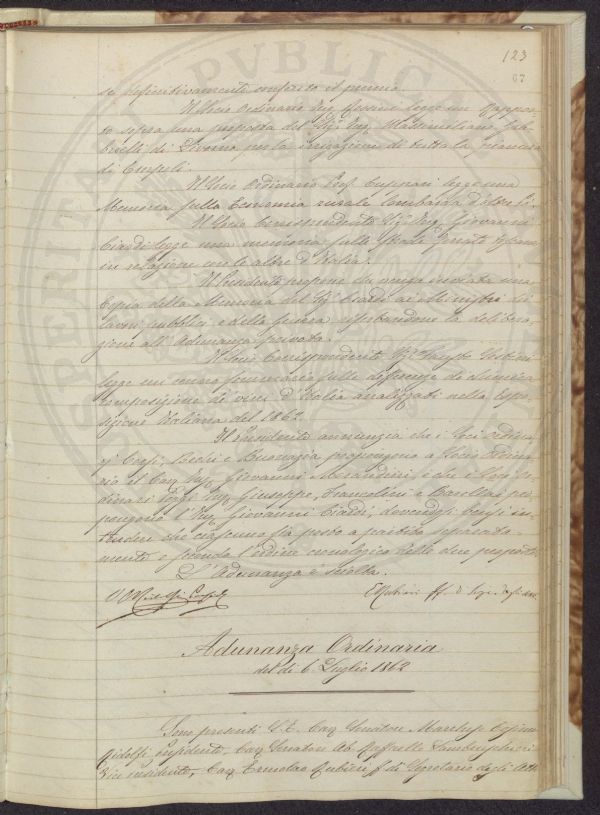 123
67
te definitivamente conferito il premio.
Il Socio Ordinario Ing. legge un Rappor-
to sopra una proposta del Sig. Ing. Massimiliano
di Livorno per la irrigazione di tutta la pianura
di
Il Socio Ordinario Prof. Cuppari legge una
Memoria sulla Economia rurale Lombarda
Il Socio Corrispondente Sig. Ing. Giovanni
Ciardi legge una memoria sulle Strade ferrate
in relazione con le altre d'Italia.
Il Presidente propone che venga inviata una
Copia della Memoria del Sig. Ciardi ai Ministri di
lavori pubblici e della guerra riserbandone la delibera-
zione all'Adunanza privata.
Il Socio Corrispondente Sig.
legge un cenno sommario sulle differenze di chimica
composizione de vini d'Italia analizzati nella Espo-
sizione Italiana del 1862.
Il Presidente annunzia che i Soci Ordina-
rj Bechi e propongono a Socio Ordina-
rio il Cav. Ing. Giovanni Morandini, e che i Soci Or-
dinari Ing. Giuseppe, e pro-
pongono l'Ing. Giovanni Ciardi, dovendosi in-
tendere che ciascuno sia posto a partito separata-
mente e secondo l'ordine cronologico delle due proposte.
L'Adunanza è sciolta.
ff. di Segr. degli Atti
Adunanza Ordinaria
del di 6. Luglio 1862
Sono presenti S. E. Cav. Senatore March. Cosimo
Ridolfi, Presidente, Cav. Senatore Ab. Raffaello Lambruschini
Vice Presidente, Cav. Ermolao Rubieri ff. di Segretario degli Atti